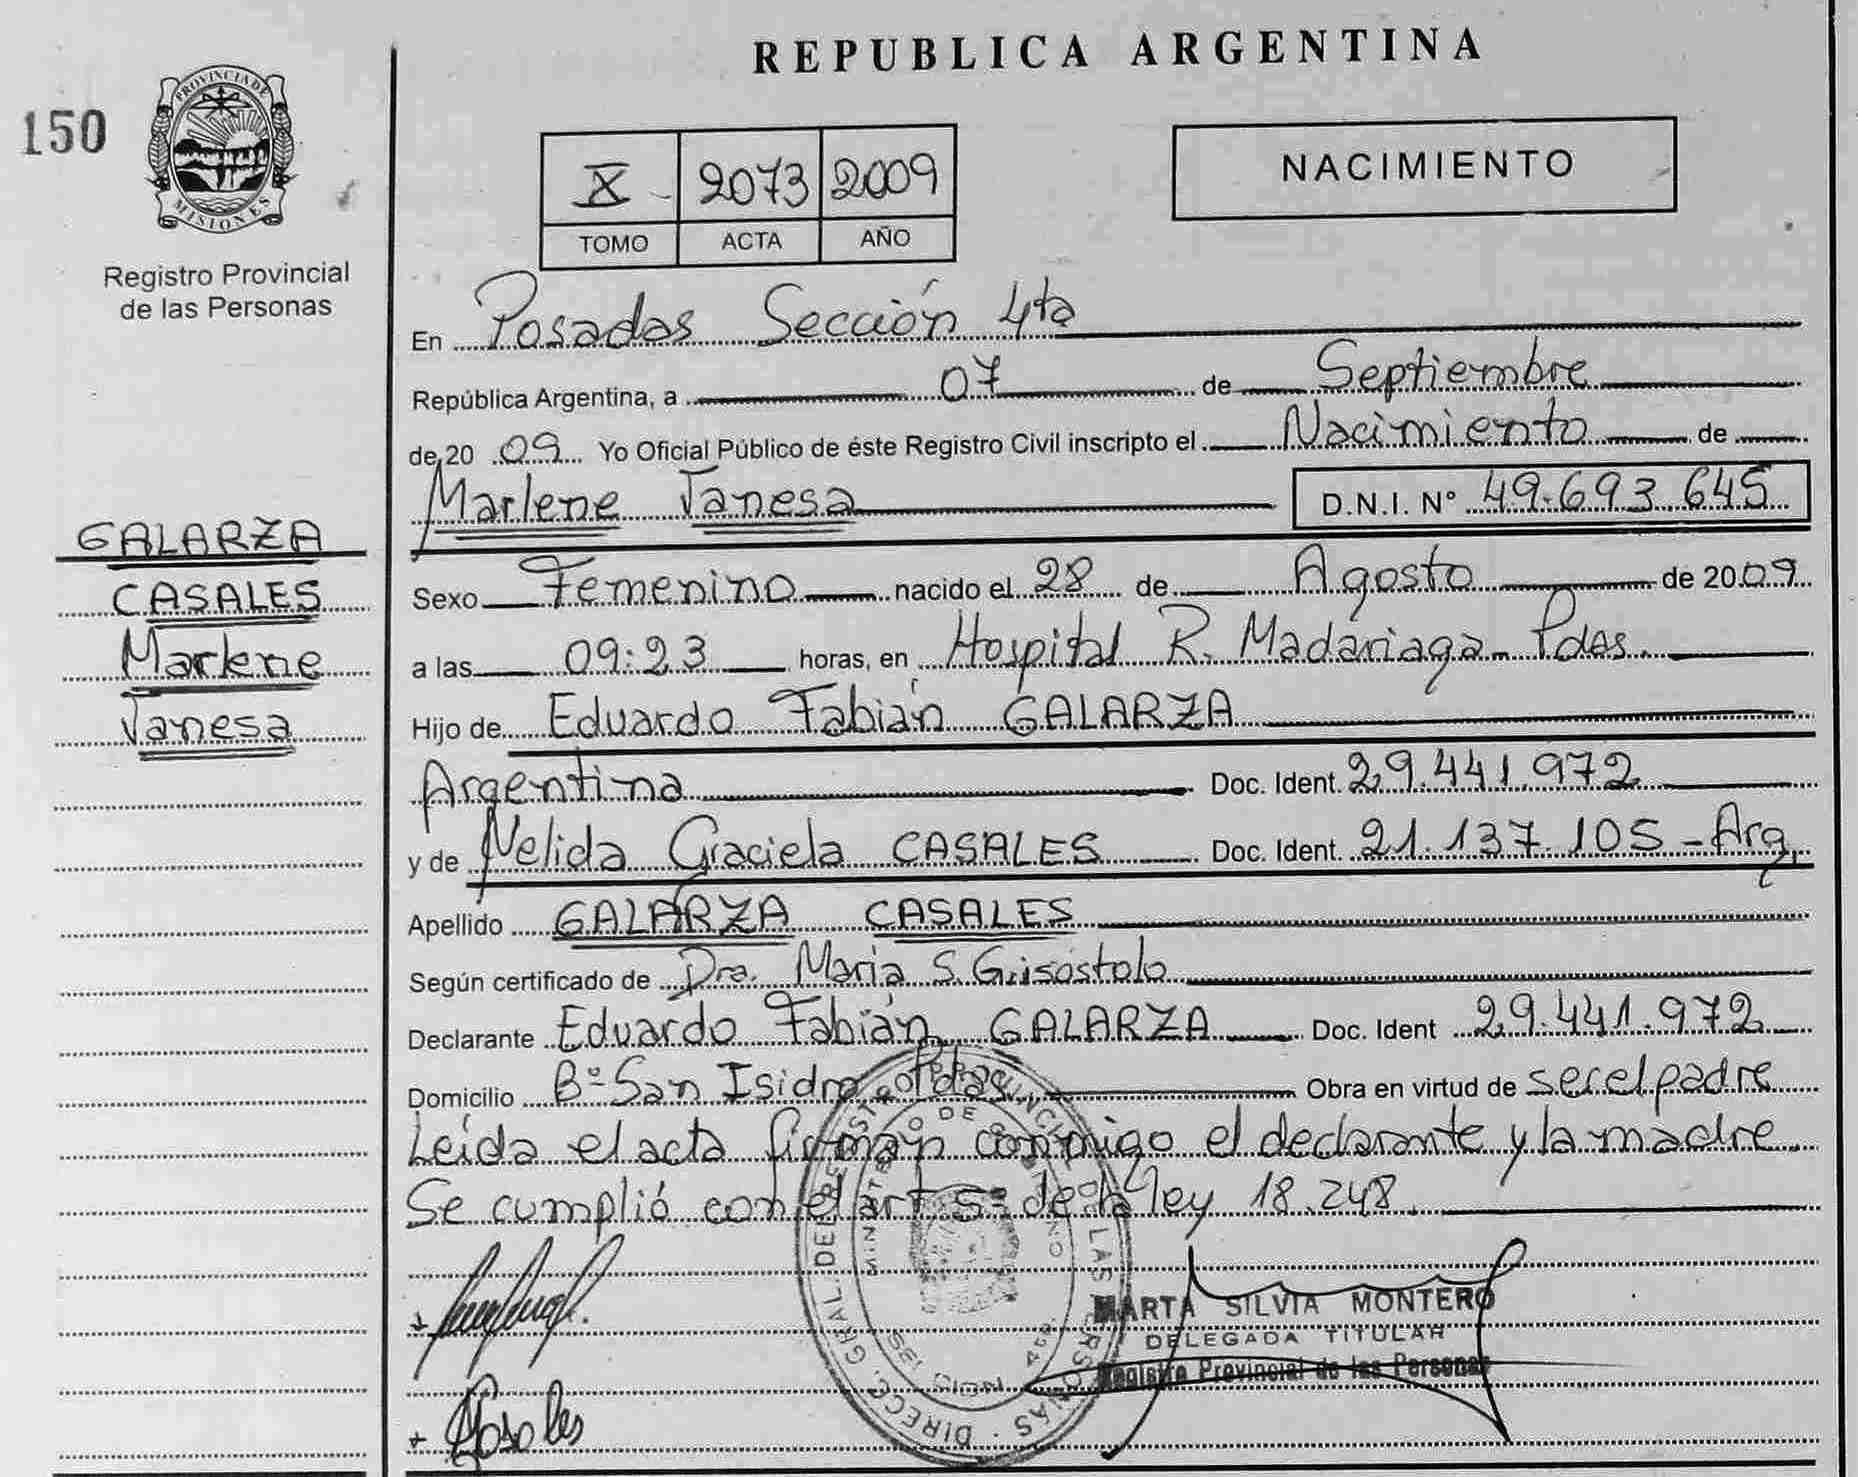 REPUBLICA ARGENTINA
150
PROVINCIA DE
MISIONES
Registro Provincial
de las Personas
X 2073 2009
TOMO ACTA AÑO
NACIMIENTO
En Posadas Sección 4ta
República Argentina, a 07 de Septiembre
de 2009 Yo Oficial Público de éste Registro Civil inscripto el Nacimiento de
Marlene Vanesa D.N.I. Nº 49.693.645
GALARZA
CASALES
Marlene
Vanesa
Sexo Femenino nacido el 28 de Agosto de 2009
a las 09:23 horas, en Hospital R. Madariaga - Pdas.
Hijo de Eduardo Fabián GALARZA
Argentina Doc. Ident. 29.441.972
y de Nelida Graciela CASALES Doc. Ident. 21.137.105 - Arg.
Apellido GALARZA CASALES
Según certificado de Dra. Maria S. Grisóstolo
Declarante Eduardo Fabián GALARZA Doc. Ident 29.441.972
Domicilio Bº San Isidro Pdas. Obra en virtud de ser el padre
Leída el acta firman conmigo el declarante y la madre.
Se cumplió con el art 5º de la ley 18.248.
MARTA SILVIA MONTERO
DELEGADA TITULAR
Registro Provincial de las Personas
Casales